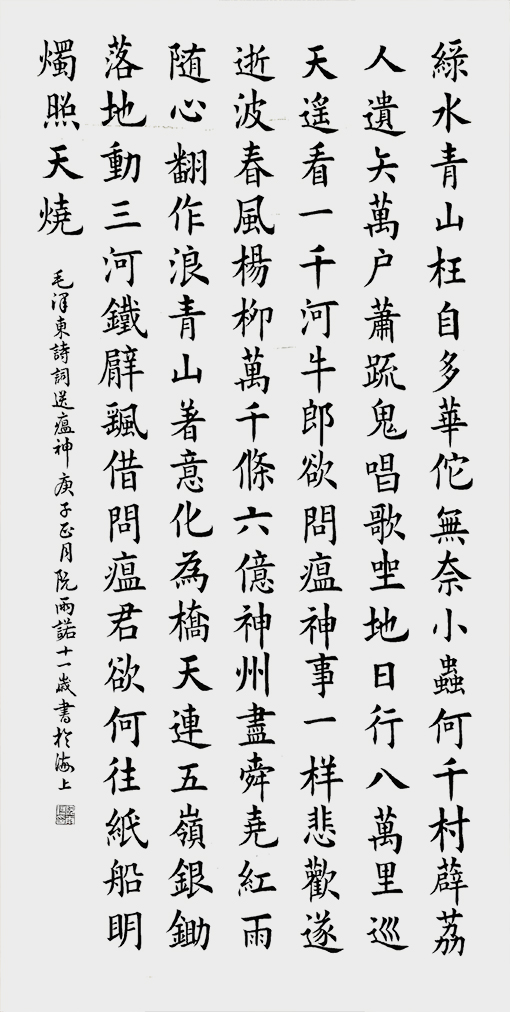 綠水青山枉自多華佗無奈小蟲何千村薜荔
人遺矢萬户蕭疏鬼唱歌坐地日行八萬里巡
天遥看一千河牛郎欲問瘟神事一样悲歡遂
逝波春風楊柳萬千條六億神州盡舜堯紅雨
随心翻作浪青山著意化為橋天連五嶺銀鋤
落地動三河鐵臂飄借問瘟君欲何往紙船明
燭照天燒
毛澤東詩詞送瘟神庚子正月阮雨諾十一歲書於海上